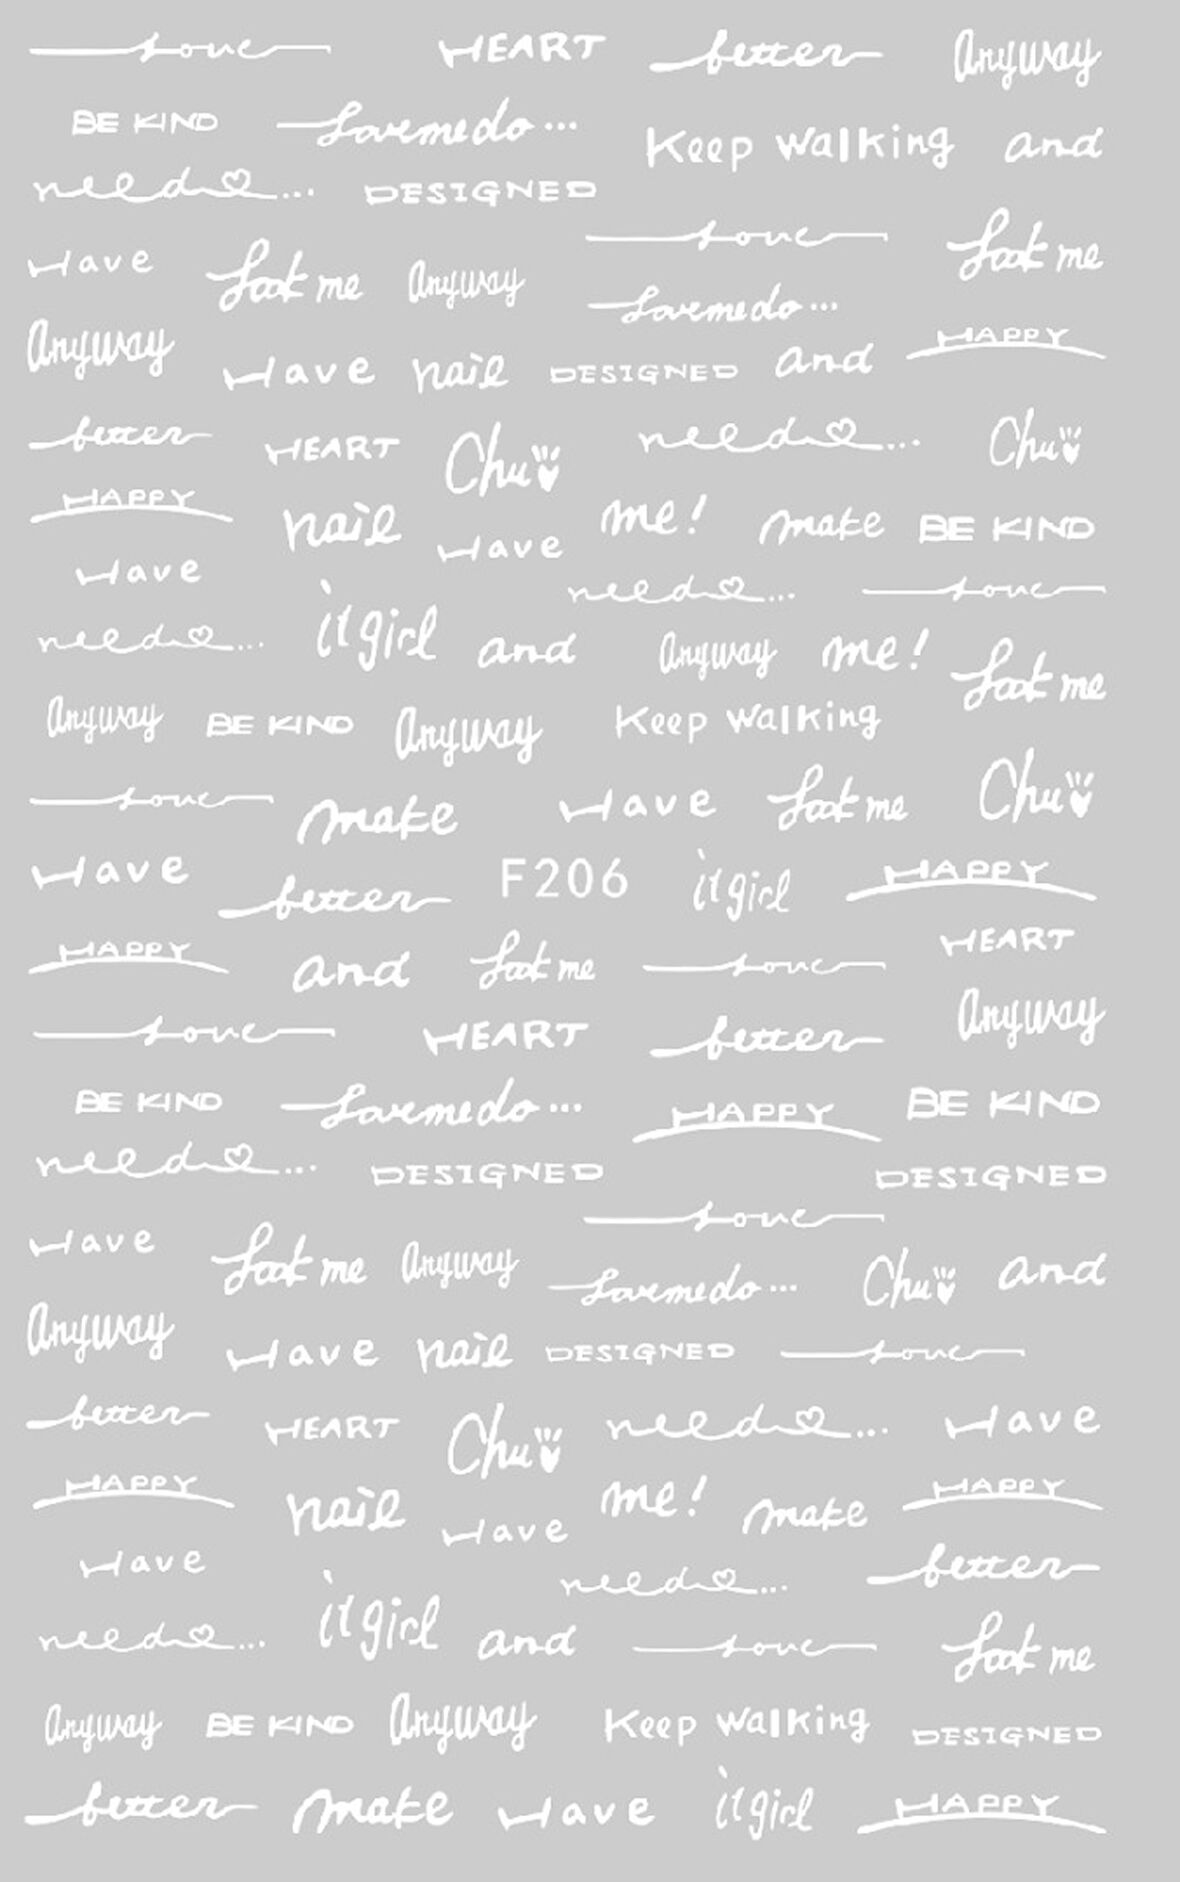 love HEART better Anyway
BE KIND Lovemedo... Keep walking and
need... DESIGNED
Have Look me Anyway love Look me
Lovemedo...
Anyway Have nail DESIGNED and HAPPY
better HEART Chu need... Chu
HAPPY nail Have me! make BE KIND
Have need... love
need... it girl and Anyway me! Look me
Anyway BE KIND Anyway Keep walking
love make Have Look me Chu
Have better F206 it girl HAPPY
HAPPY and Look me love HEART
love HEART better Anyway
BE KIND Lovemedo... HAPPY BE KIND
need... DESIGNED DESIGNED
love
Have Look me Anyway Lovemedo... Chu and
Anyway Have nail DESIGNED love
better HEART Chu need... Have
HAPPY nail Have me! make HAPPY
Have need... better
need... it girl and love Look me
Anyway BE KIND Anyway Keep walking DESIGNED
better make Have it girl HAPPY